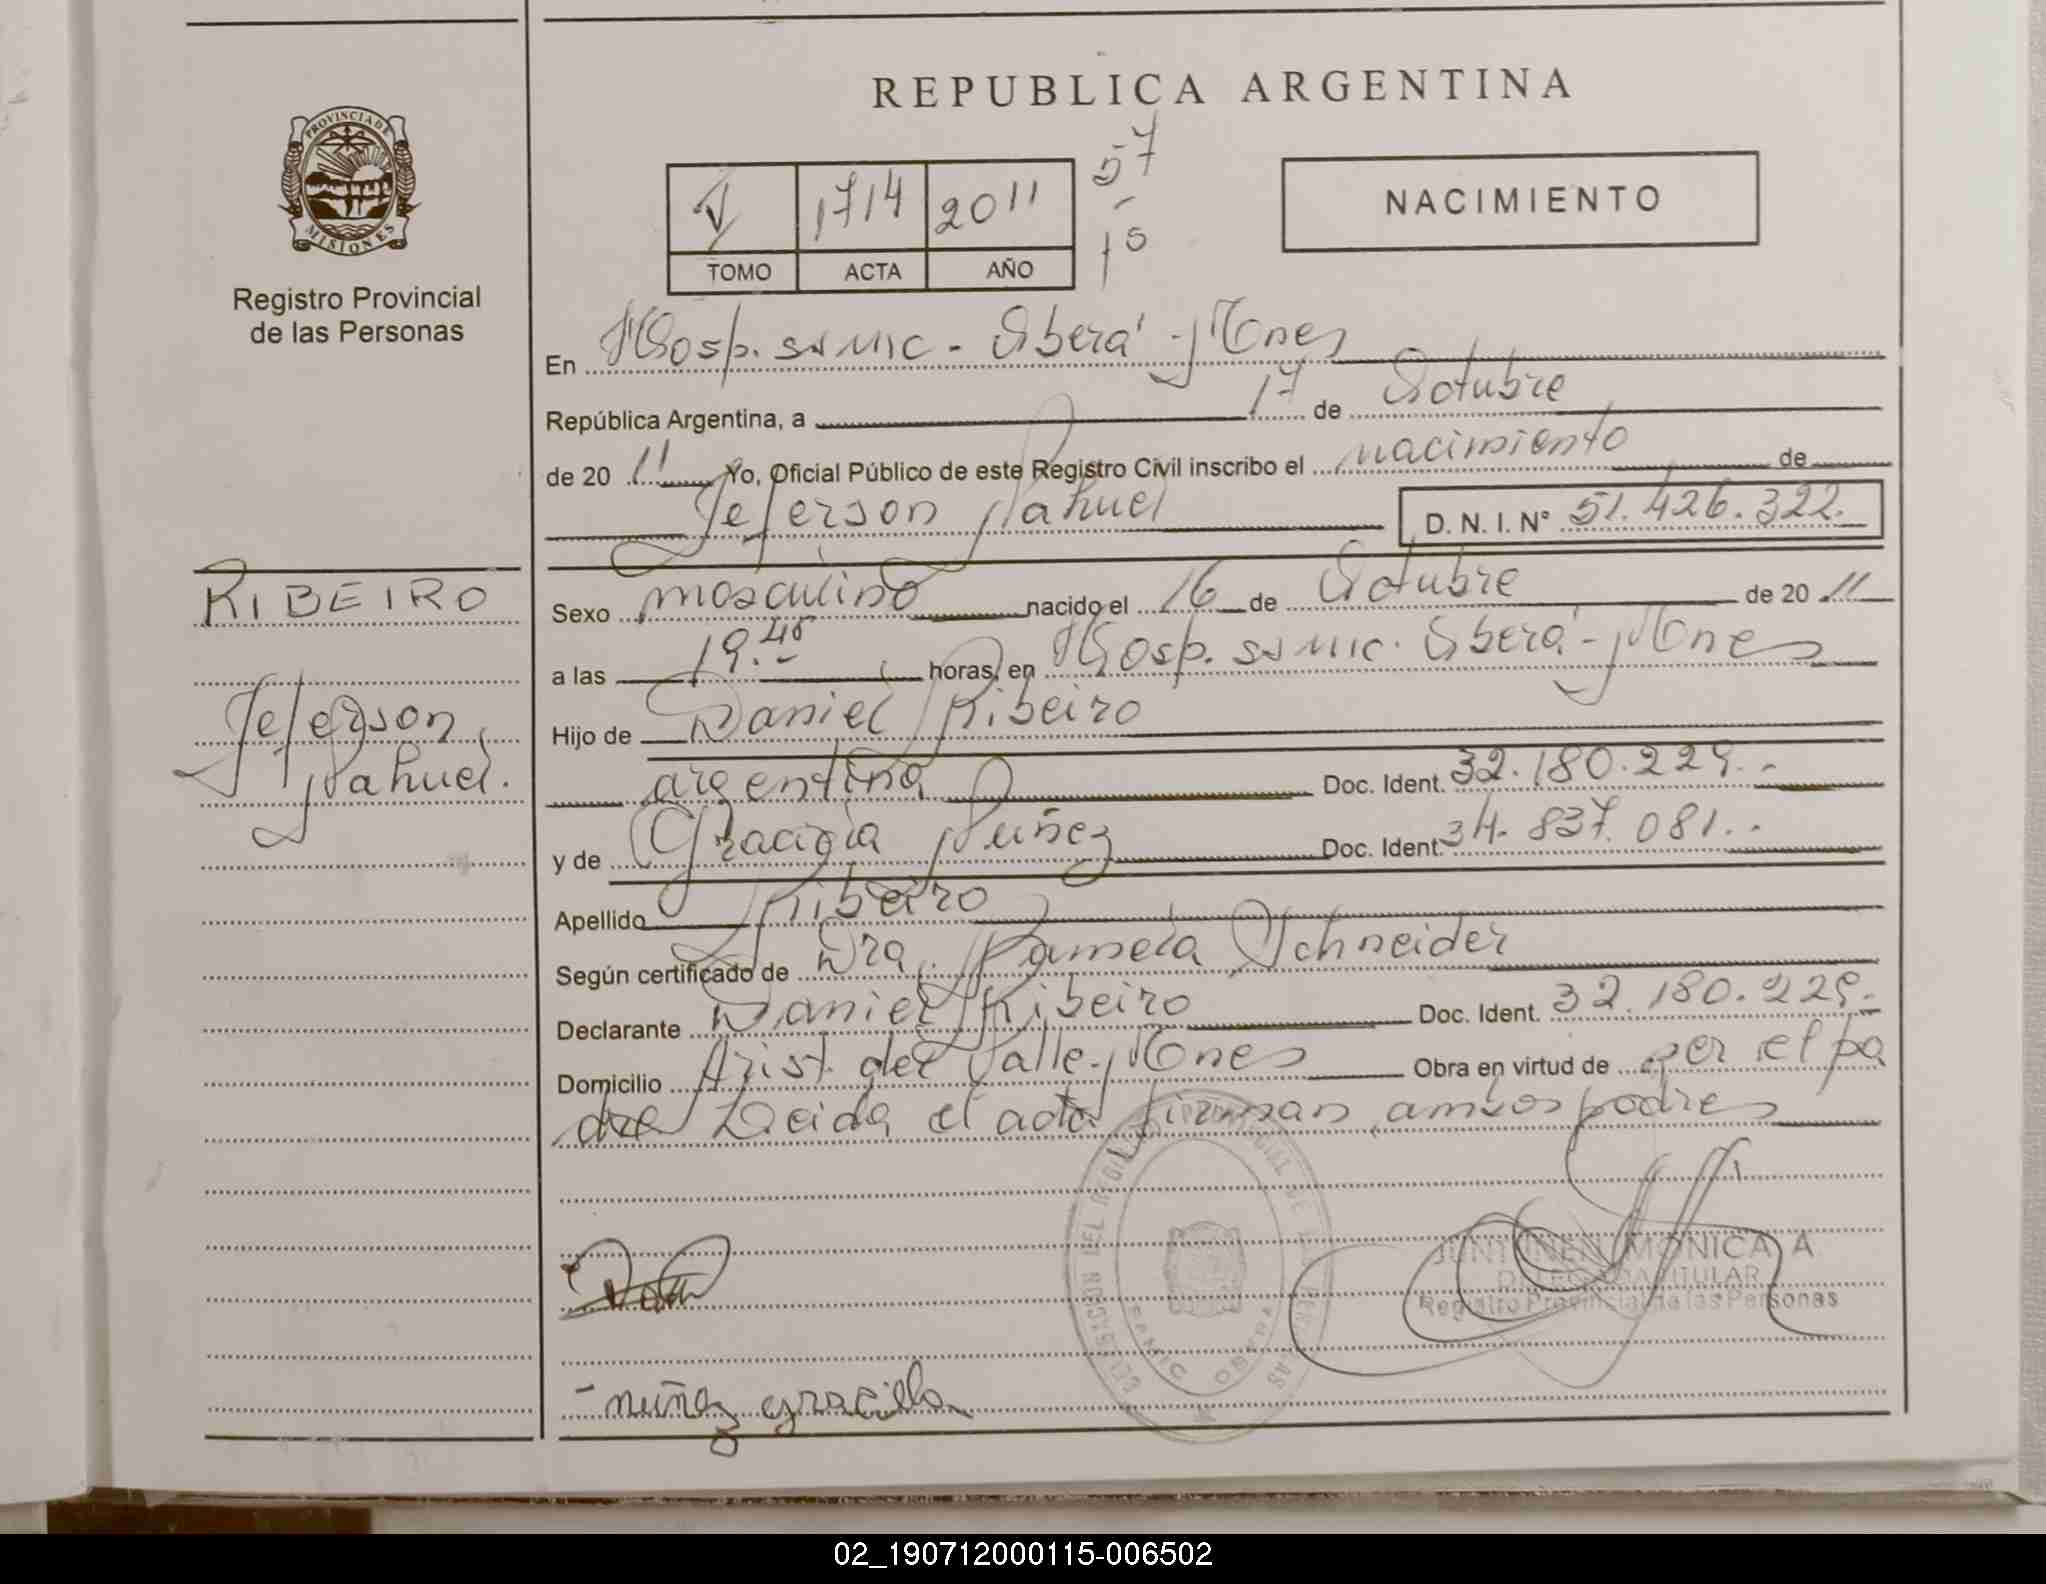 REPUBLICA ARGENTINA
PROVINCIA DE
MISIONES
Registro Provincial
de las Personas
V 1714 2011
TOMO ACTA AÑO
57
-
15
NACIMIENTO
En Hosp. SAMIC - Oberá - Mnes
República Argentina, a 17 de Octubre
de 20 11 Yo, Oficial Público de este Registro Civil inscribo el nacimiento de
Jeferson Nahuel D. N. I. Nº 51.426.322.
RIBEIRO
Jeferson
Nahuel.
Sexo masculino nacido el 16 de Octubre de 20 11
a las 19.40 horas, en Hosp. SAMIC. Oberá - Mnes
Hijo de Daniel Ribeiro
argentina Doc. Ident. 32.180.229.-
y de Graciela Nuñez Doc. Ident. 34.837.081.-
Apellido Ribeiro
Según certificado de Dra. Pamela Schneider
Declarante Daniel Ribeiro Doc. Ident. 32.180.229.-
Domicilio Arist. del Valle - Mnes Obra en virtud de ser el pa
dre Leida el acta firman ambos padres
SAMIC OBERA
MONICA A
DELEGADA TITULAR
Registro Provincial de las Personas
- nuñez graciela
02_190712000115-006502